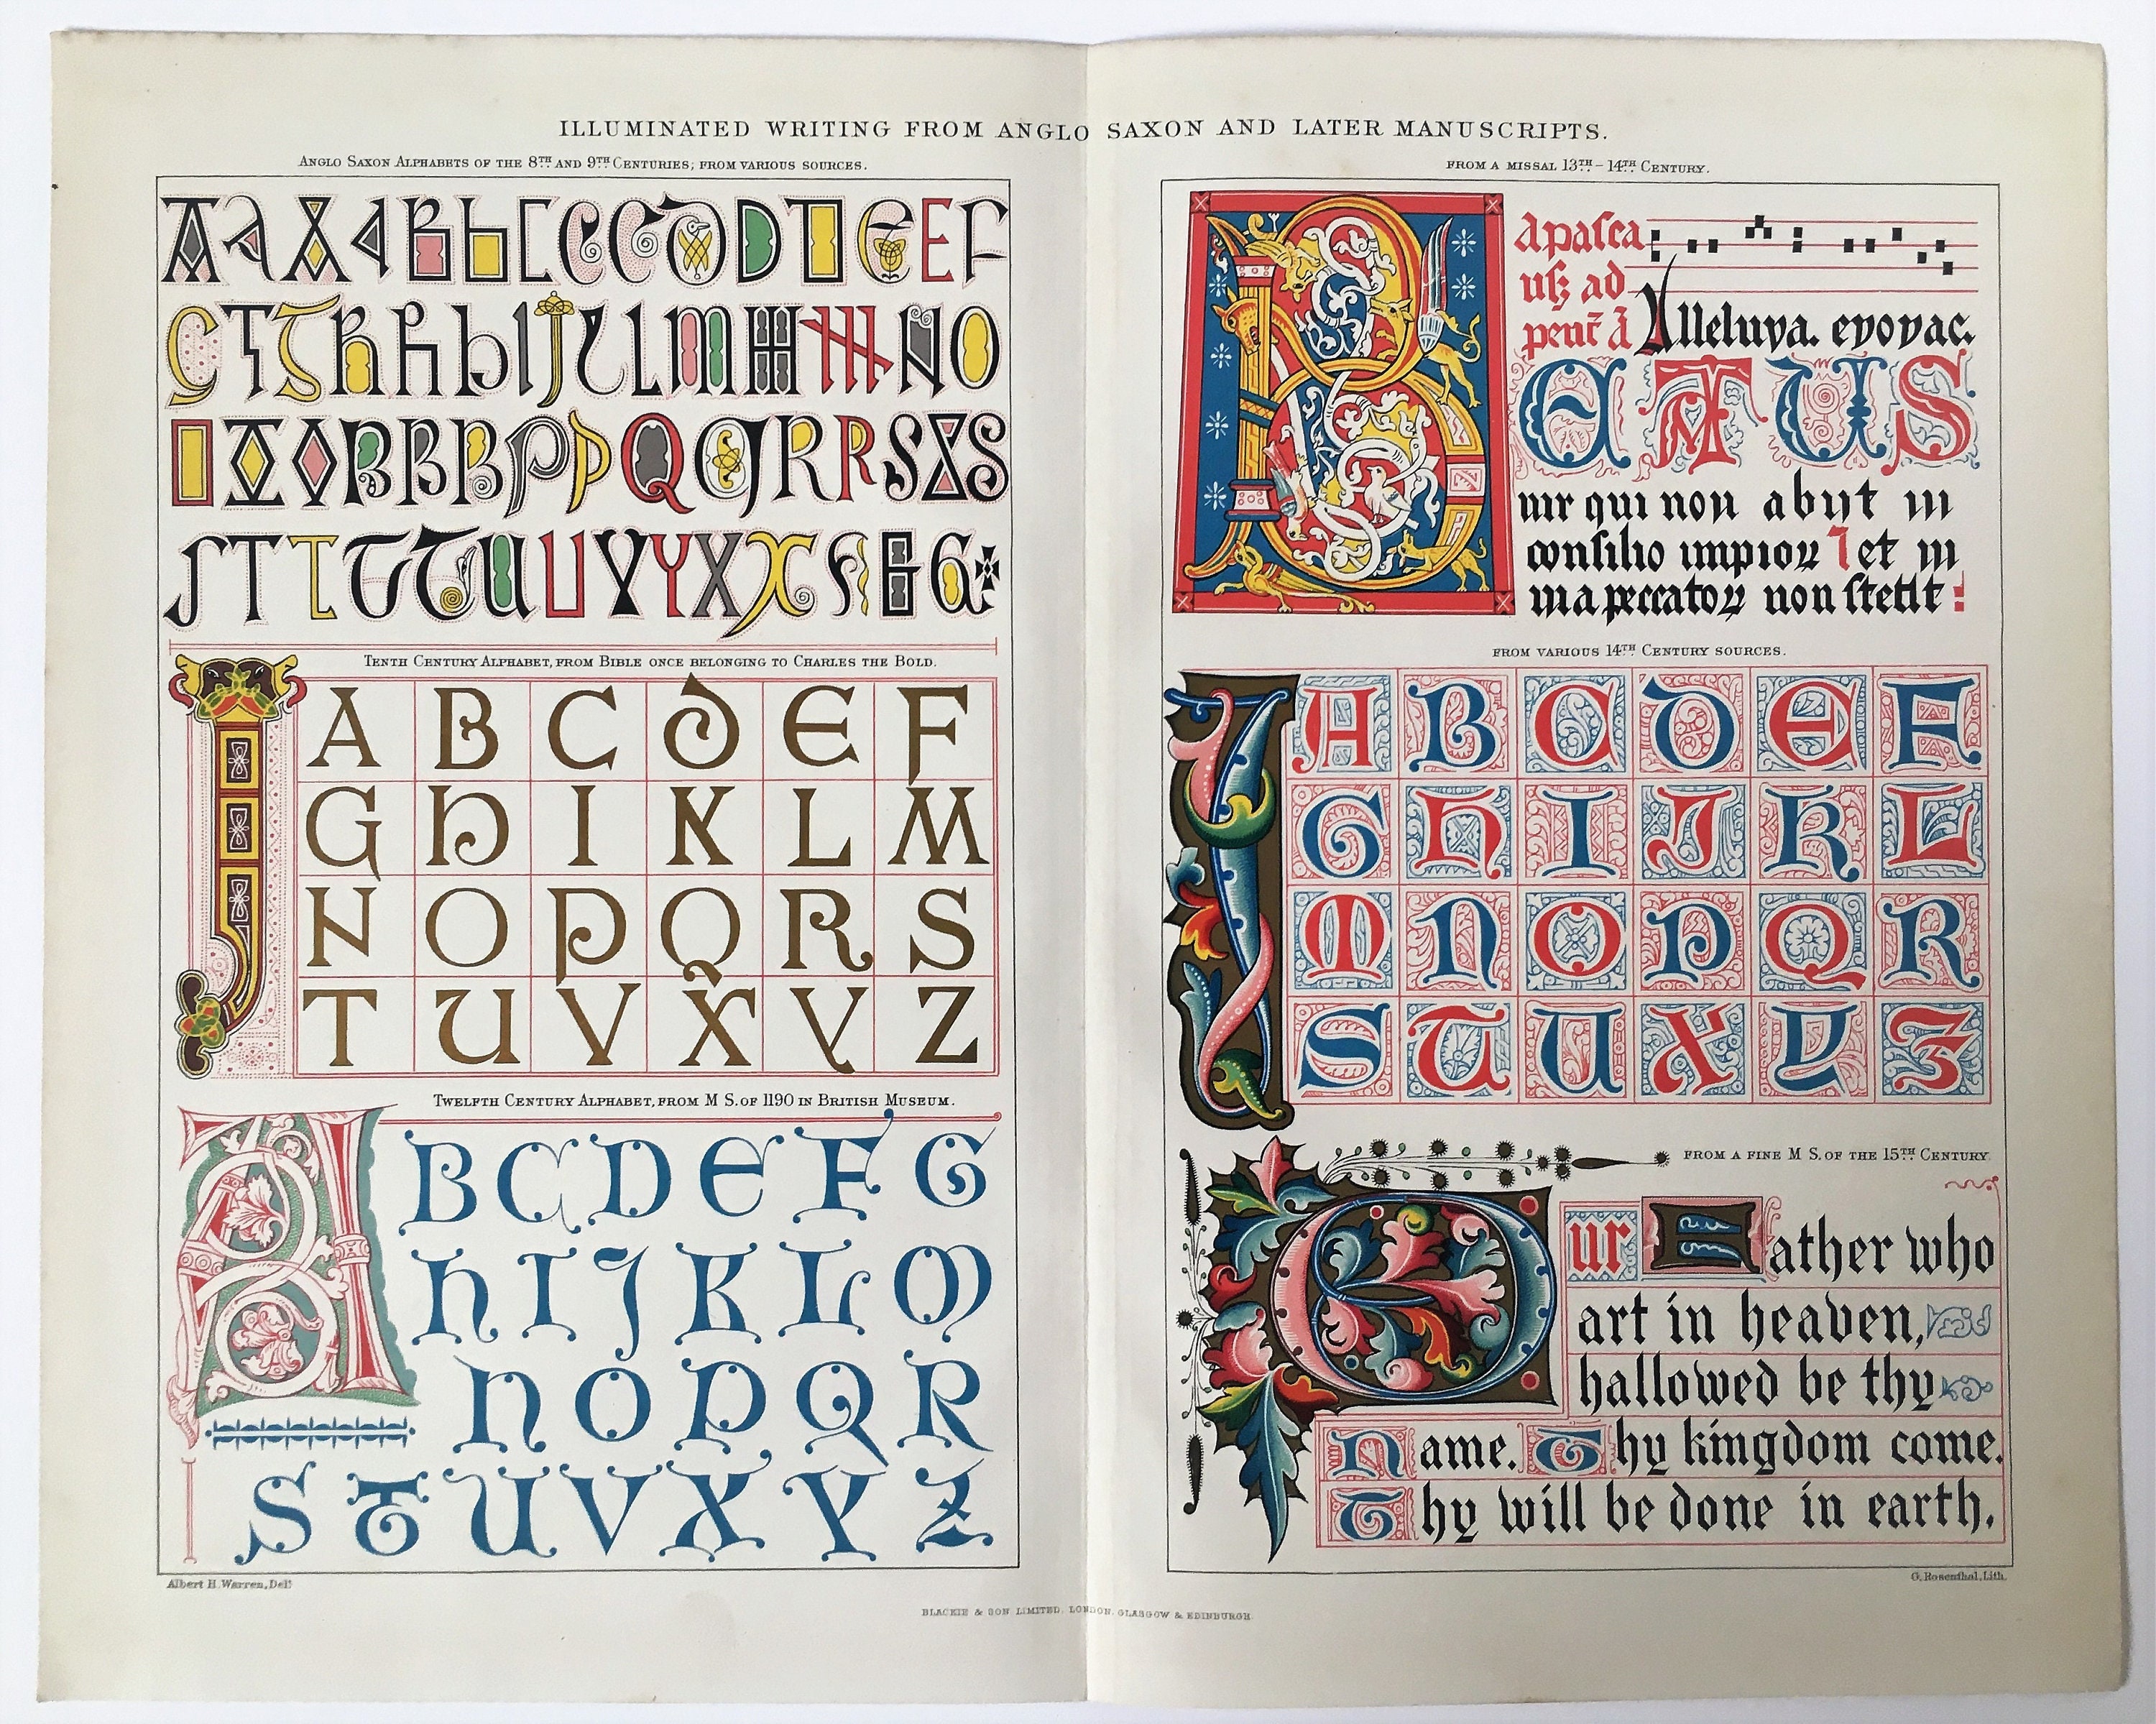 ILLUMINATED WRITING FROM ANGLO SAXON AND LATER MANUSCRIPTS.
ANGLO SAXON ALPHABETS OF THE 8TH AND 9TH CENTURIES; FROM VARIOUS SOURCES.
TENTH CENTURY ALPHABET, FROM BIBLE ONCE BELONGING TO CHARLES THE BOLD.
A B C D E F
G H I K L M
N O P Q R S
T U V X Y Z
TWELFTH CENTURY ALPHABET, FROM M S. OF 1190 IN BRITISH MUSEUM.
A B C D E F G
H I J K L M
N O P Q R
S T U V X Y Z
Albert H. Warren, Delt
FROM A MISSAL 13TH – 14TH CENTURY.
apasca
ad
Alleluya. evovae.
BEATUS
uir qui non abijt in
consilio impioꝝ et in
uia peccatoꝝ non stetit:
FROM VARIOUS 14TH CENTURY SOURCES.
A B C D E F
G H I J K L
M N O P Q R
S T U X Y Z
FROM A FINE M S. OF THE 15TH CENTURY.
Our Father who
art in heaven,
hallowed be thy
Name. Thy kingdom come.
Thy will be done in earth,
G. Rosenthal, Lith.
BLACKIE & SON LIMITED, LONDON, GLASGOW & EDINBURGH.